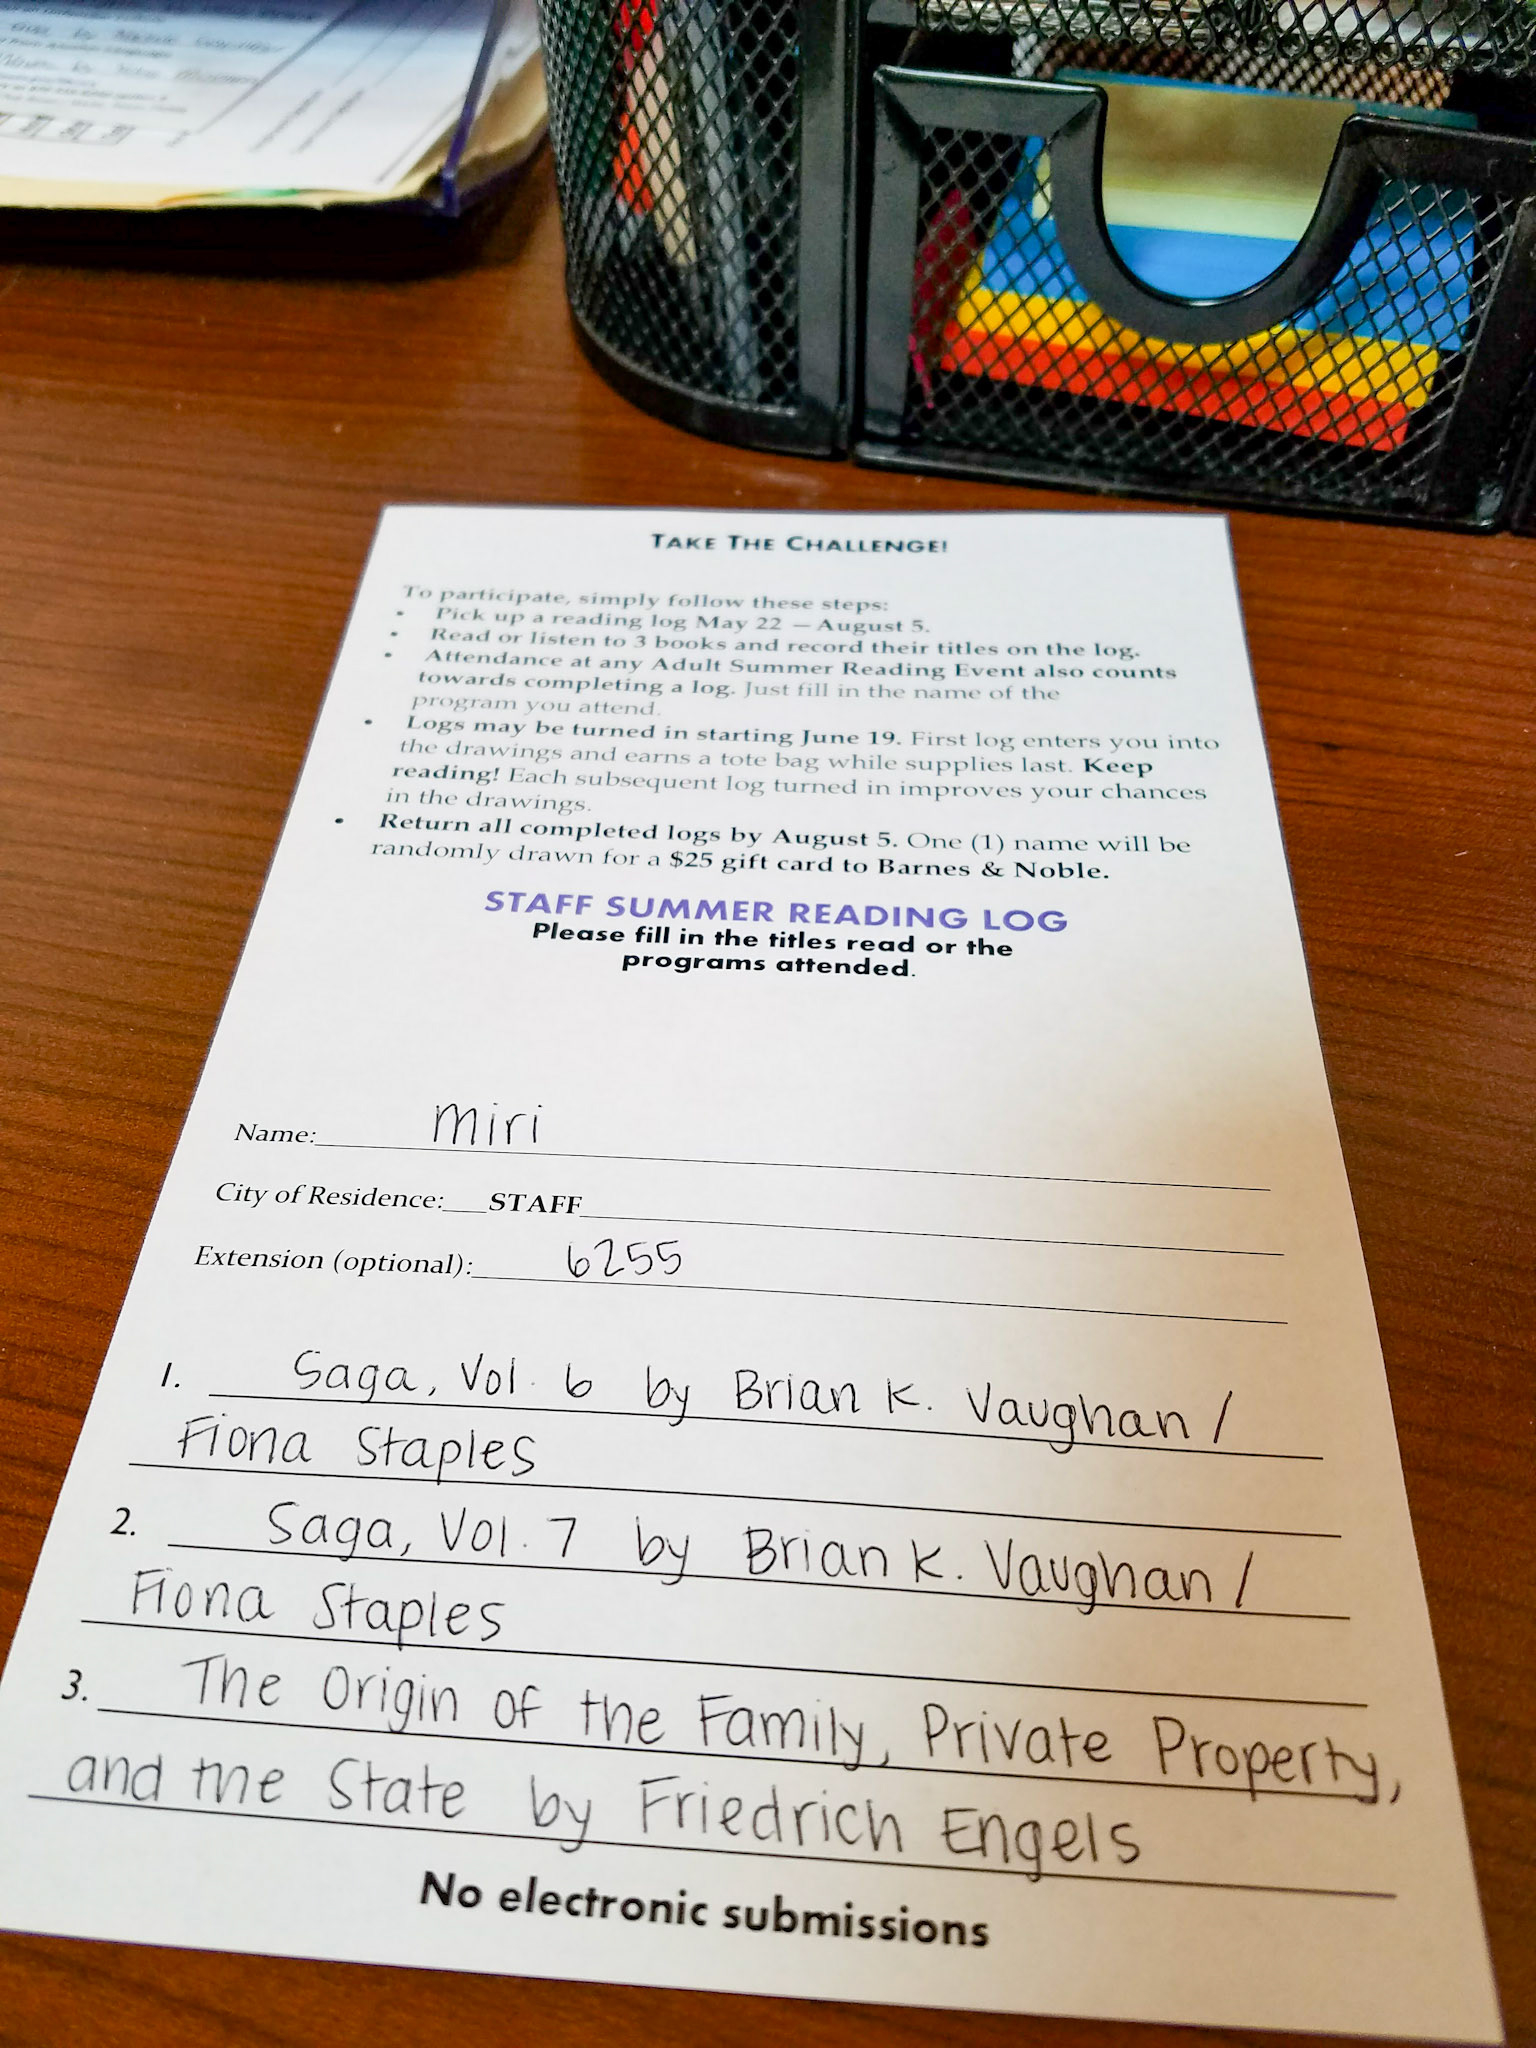 TAKE THE CHALLENGE!
To participate, simply follow these steps:
• Pick up a reading log May 22 – August 5.
• Read or listen to 3 books and record their titles on the log.
• Attendance at any Adult Summer Reading Event also counts
towards completing a log. Just fill in the name of the
program you attend.
• Logs may be turned in starting June 19. First log enters you into
the drawings and earns a tote bag while supplies last. Keep
reading! Each subsequent log turned in improves your chances
in the drawings.
• Return all completed logs by August 5. One (1) name will be
randomly drawn for a $25 gift card to Barnes & Noble.
STAFF SUMMER READING LOG
Please fill in the titles read or the
programs attended.
Name: Miri
City of Residence: STAFF
Extension (optional): 6255
1. Saga, Vol. 6 by Brian K. Vaughan /
Fiona Staples
2. Saga, Vol. 7 by Brian K. Vaughan /
Fiona Staples
3. The Origin of the Family, Private Property,
and the State by Friedrich Engels
No electronic submissions